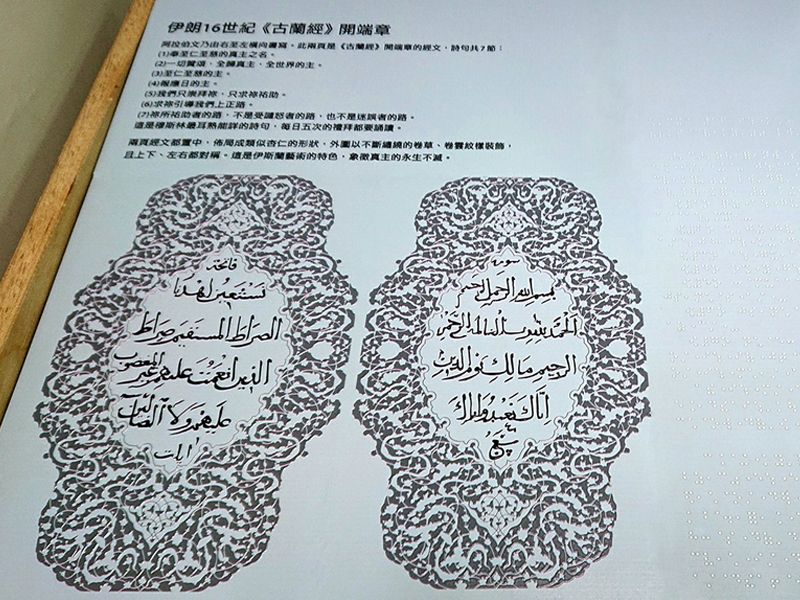 伊朗16世紀《古蘭經》開端章
阿拉伯文乃由右至左橫向書寫。此兩頁是《古蘭經》開端章的經文，詩句共7節：
(1)奉至仁至慈的真主之名。
(2)一切贊頌，全歸真主，全世界的主。
(3)至仁至慈的主。
(4)報應日的主。
(5)我們只崇拜祢，只求祢祐助。
(6)求祢引導我們上正路。
(7)祢所祐助者的路，不是受譴怒者的路，也不是迷誤者的路。
這是穆斯林最耳熟能詳的詩句，每日五次的禮拜都要誦讀。
兩頁經文都置中，佈局成類似杏仁的形狀，外圍以不斷纏繞的卷草、卷雲紋樣裝飾，
且上下、左右都對稱。這是伊斯蘭藝術的特色，象徵真主的永生不滅。
سورة
بسم الله الرحمن الرحيم
الحمد لله رب العالمين الرحمن
الرحيم مالك يوم الدين
اياك نعبد واياك
سبع
فاتحة
نستعين اهدنا
الصراط المستقيم صراط
الذين انعمت عليهم غير المغضوب
عليهم ولا الضالين
ايات